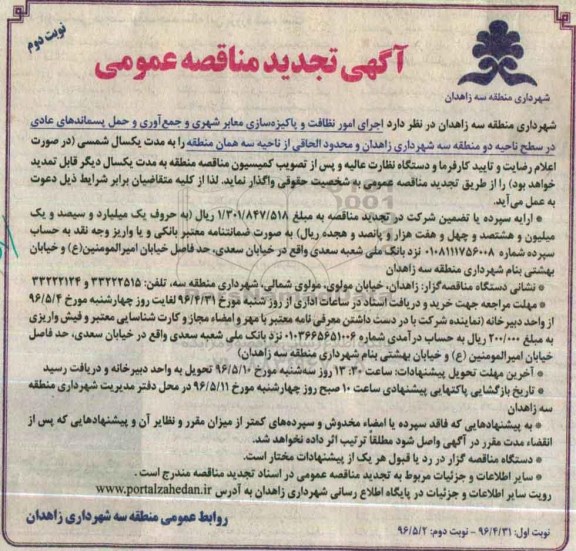 نوبت دوم
آگهی تجدید مناقصه عمومی
شهرداری منطقه سه زاهدان
شهرداری منطقه سه زاهدان در نظر دارد اجرای امور نظافت و پاکیزه‌سازی معابر شهری و جمع‌آوری و حمل پسماندهای عادی
در سطح ناحیه دو منطقه سه شهرداری زاهدان و محدود الحاقی از ناحیه سه همان منطقه را به مدت یکسال شمسی (در صورت
اعلام رضایت و تایید کارفرما و دستگاه نظارت عالیه و پس از تصویب کمیسیون مناقصه منطقه به مدت یکسال دیگر قابل تمدید
خواهد بود) را از طریق تجدید مناقصه عمومی به شخصیت حقوقی واگذار نماید. لذا از کلیه متقاضیان برابر شرایط ذیل دعوت
به عمل می‌آید.
* ارایه سپرده یا تضمین شرکت در تجدید مناقصه به مبلغ ۱/۳۰۱/۸۴۷/۵۱۸ ریال (به حروف یک میلیارد و سیصد و یک
میلیون و هشتصد و چهل و هفت هزار و پانصد و هجده ریال) به صورت ضمانتنامه معتبر بانکی و یا واریز وجه نقد به حساب
سپرده شماره ۰۱۰۸۱۱۱۷۵۶۰۰۸ نزد بانک ملی شعبه سعدی واقع در خیابان سعدی، حد فاصل خیابان امیرالمومنین(ع) و خیابان
بهشتی بنام شهرداری منطقه سه زاهدان
* نشانی دستگاه مناقصه‌گزار: زاهدان، خیابان مولوی، مولوی شمالی، شهرداری منطقه سه، تلفن: ۳۳۲۲۲۵۱۵ و ۳۳۲۲۲۱۲۴
* مهلت مراجعه جهت خرید و دریافت اسناد در ساعات اداری از روز شنبه مورخ ۹۶/۴/۳۱ لغایت روز چهارشنبه مورخ ۹۶/۵/۴
از واحد دبیرخانه (نماینده شرکت با در دست داشتن معرفی نامه معتبر با مهر و امضاء مجاز و کارت شناسایی معتبر و فیش واریزی
به مبلغ ۲۰۰/۰۰۰ ریال به حساب درآمدی شماره ۰۱۰۳۶۶۵۶۵۱۰۰۶ نزد بانک ملی شعبه سعدی واقع در خیابان سعدی، حد فاصل
خیابان امیرالمومنین (ع) و خیابان بهشتی بنام شهرداری منطقه سه زاهدان)
* آخرین مهلت تحویل پیشنهادات: ساعت ۱۳:۳۰ روز سه‌شنبه مورخ ۹۶/۵/۱۰ تحویل به واحد دبیرخانه و دریافت رسید
* تاریخ بازگشایی پاکتهایی پیشنهادی ساعت ۱۰ صبح روز چهارشنبه مورخ ۹۶/۵/۱۱ در محل دفتر مدیریت شهرداری منطقه
سه زاهدان
* به پیشنهادهایی که فاقد سپرده یا امضاء مخدوش و سپرده‌های کمتر از میزان مقرر و نظایر آن و پیشنهادهایی که پس از
انقضاء مدت مقرر در آگهی واصل شود مطلقاً ترتیب اثر داده نخواهد شد.
* دستگاه مناقصه گزار در رد یا قبول هر یک از پیشنهادات مختار است.
* سایر اطلاعات و جزئیات مربوط به تجدید مناقصه عمومی در اسناد تجدید مناقصه مندرج است.
رویت سایر اطلاعات و جزئیات در پایگاه اطلاع رسانی شهرداری زاهدان به آدرس www.portalzahedan.ir
روابط عمومی منطقه سه شهرداری زاهدان
نوبت اول: ۹۶/۴/۳۱ - نوبت دوم: ۹۶/۵/۲